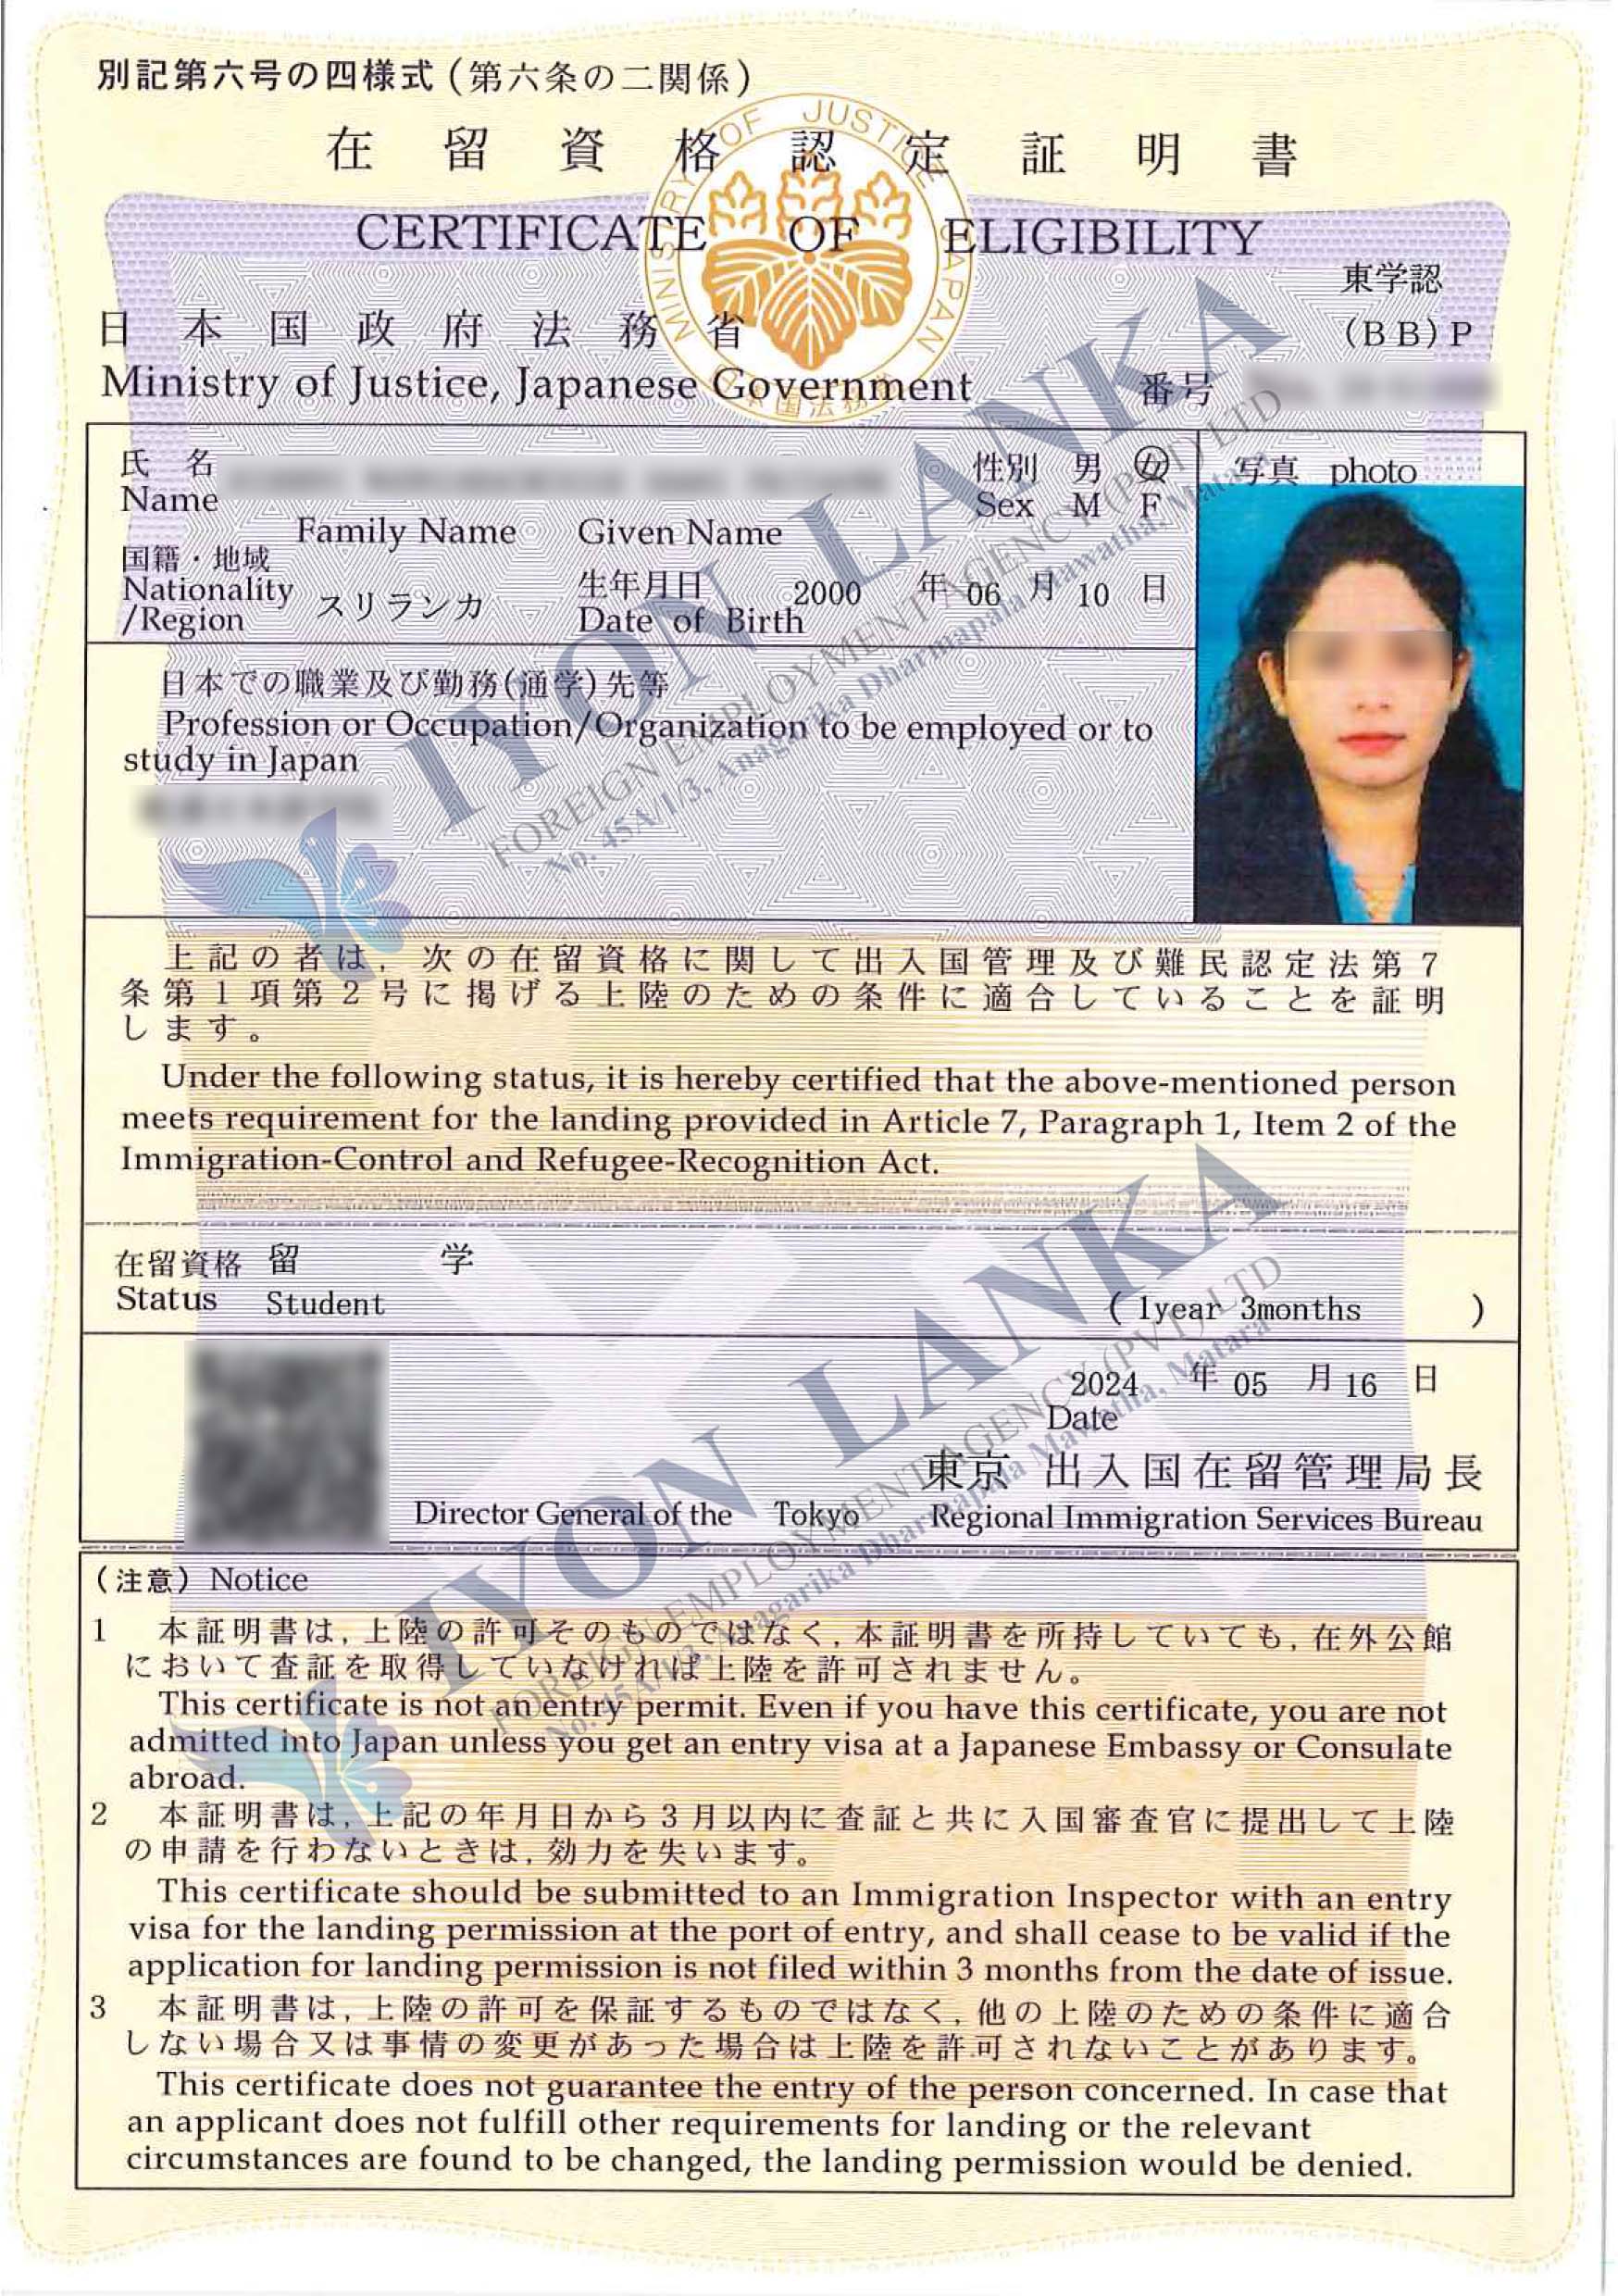 別記第六号の四様式(第六条の二関係)
在留資格認定証明書
CERTIFICATE OF ELIGIBILITY
MINISTRY OF JUSTICE JAPAN
日本国法務省
東学認
(BB)P
日本国政府法務省
Ministry of Justice, Japanese Government
番号
氏名
Name
Family Name Given Name
性別 男 女
Sex M F
写真 photo
国籍・地域
Nationality
/Region
スリランカ
生年月日
Date of Birth
2000 年 06 月 10 日
日本での職業及び勤務(通学)先等
Profession or Occupation/Organization to be employed or to
study in Japan
上記の者は,次の在留資格に関して出入国管理及び難民認定法第7
条第1項第2号に掲げる上陸のための条件に適合していることを証明
します。
Under the following status, it is hereby certified that the above-mentioned person
meets requirement for the landing provided in Article 7, Paragraph 1, Item 2 of the
Immigration-Control and Refugee-Recognition Act.
在留資格 留学
Status Student
( 1year 3months )
2024 年 05 月 16 日
Date
東京 出入国在留管理局長
Director General of the Tokyo Regional Immigration Services Bureau
(注意) Notice
1 本証明書は,上陸の許可そのものではなく,本証明書を所持していても,在外公館
において査証を取得していなければ上陸を許可されません。
This certificate is not an entry permit. Even if you have this certificate, you are not
admitted into Japan unless you get an entry visa at a Japanese Embassy or Consulate
abroad.
2 本証明書は,上記の年月日から3月以内に査証と共に入国審査官に提出して上陸
の申請を行わないときは,効力を失います。
This certificate should be submitted to an Immigration Inspector with an entry
visa for the landing permission at the port of entry, and shall cease to be valid if the
application for landing permission is not filed within 3 months from the date of issue.
3 本証明書は,上陸の許可を保証するものではなく,他の上陸のための条件に適合
しない場合又は事情の変更があった場合は上陸を許可されないことがあります。
This certificate does not guarantee the entry of the person concerned. In case that
an applicant does not fulfill other requirements for landing or the relevant
circumstances are found to be changed, the landing permission would be denied.
IYON LANKA
FOREIGN EMPLOYMENT AGENCY (PVT) LTD
No. 45A/1/3, Anagarika Dharmapala Mawatha, Matara
IYON LANKA
FOREIGN EMPLOYMENT AGENCY (PVT) LTD
No. 45A/1/3, Anagarika Dharmapala Mawatha, Matara